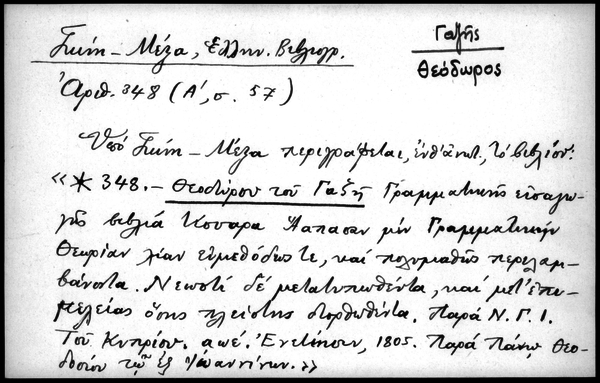 Γκίνη – Μέξα, Ἑλλην. Βιβλιογρ.
Γαζῆς
Θεόδωρος
Ἀριθ. 348 (Α΄, σ. 57)
Ὑπό Γκίνη – Μέξα περιγράφεται, ἐνθ᾽ ἀνωτ., τό βιβλίον:
«* 348. – Θεοδώρου τοῦ Γαζῆ Γραμματικῆς εἰσαγω-
γῆς βιβλία τέσσαρα ἅπασαν μήν Γραμματικήν
Θεωρίαν λίαν εὐμεθόδως τε, καί πολυμαθῶς περιλαμ-
βάνοντα. Νεωστί δέ μετατυπωθέντα, καί μετ᾽ ἐπι-
μελείας ὅσης πλείστης διορθωθέντα. Παρά Ν. Γ. Ι.
Τοῦ Κυπρίου. αωέ. Ἐνετίησιν, 1805. Παρά Πάνῳ Θεο-
δοσίου τῷ ἐξ Ἰωαννίνων.»